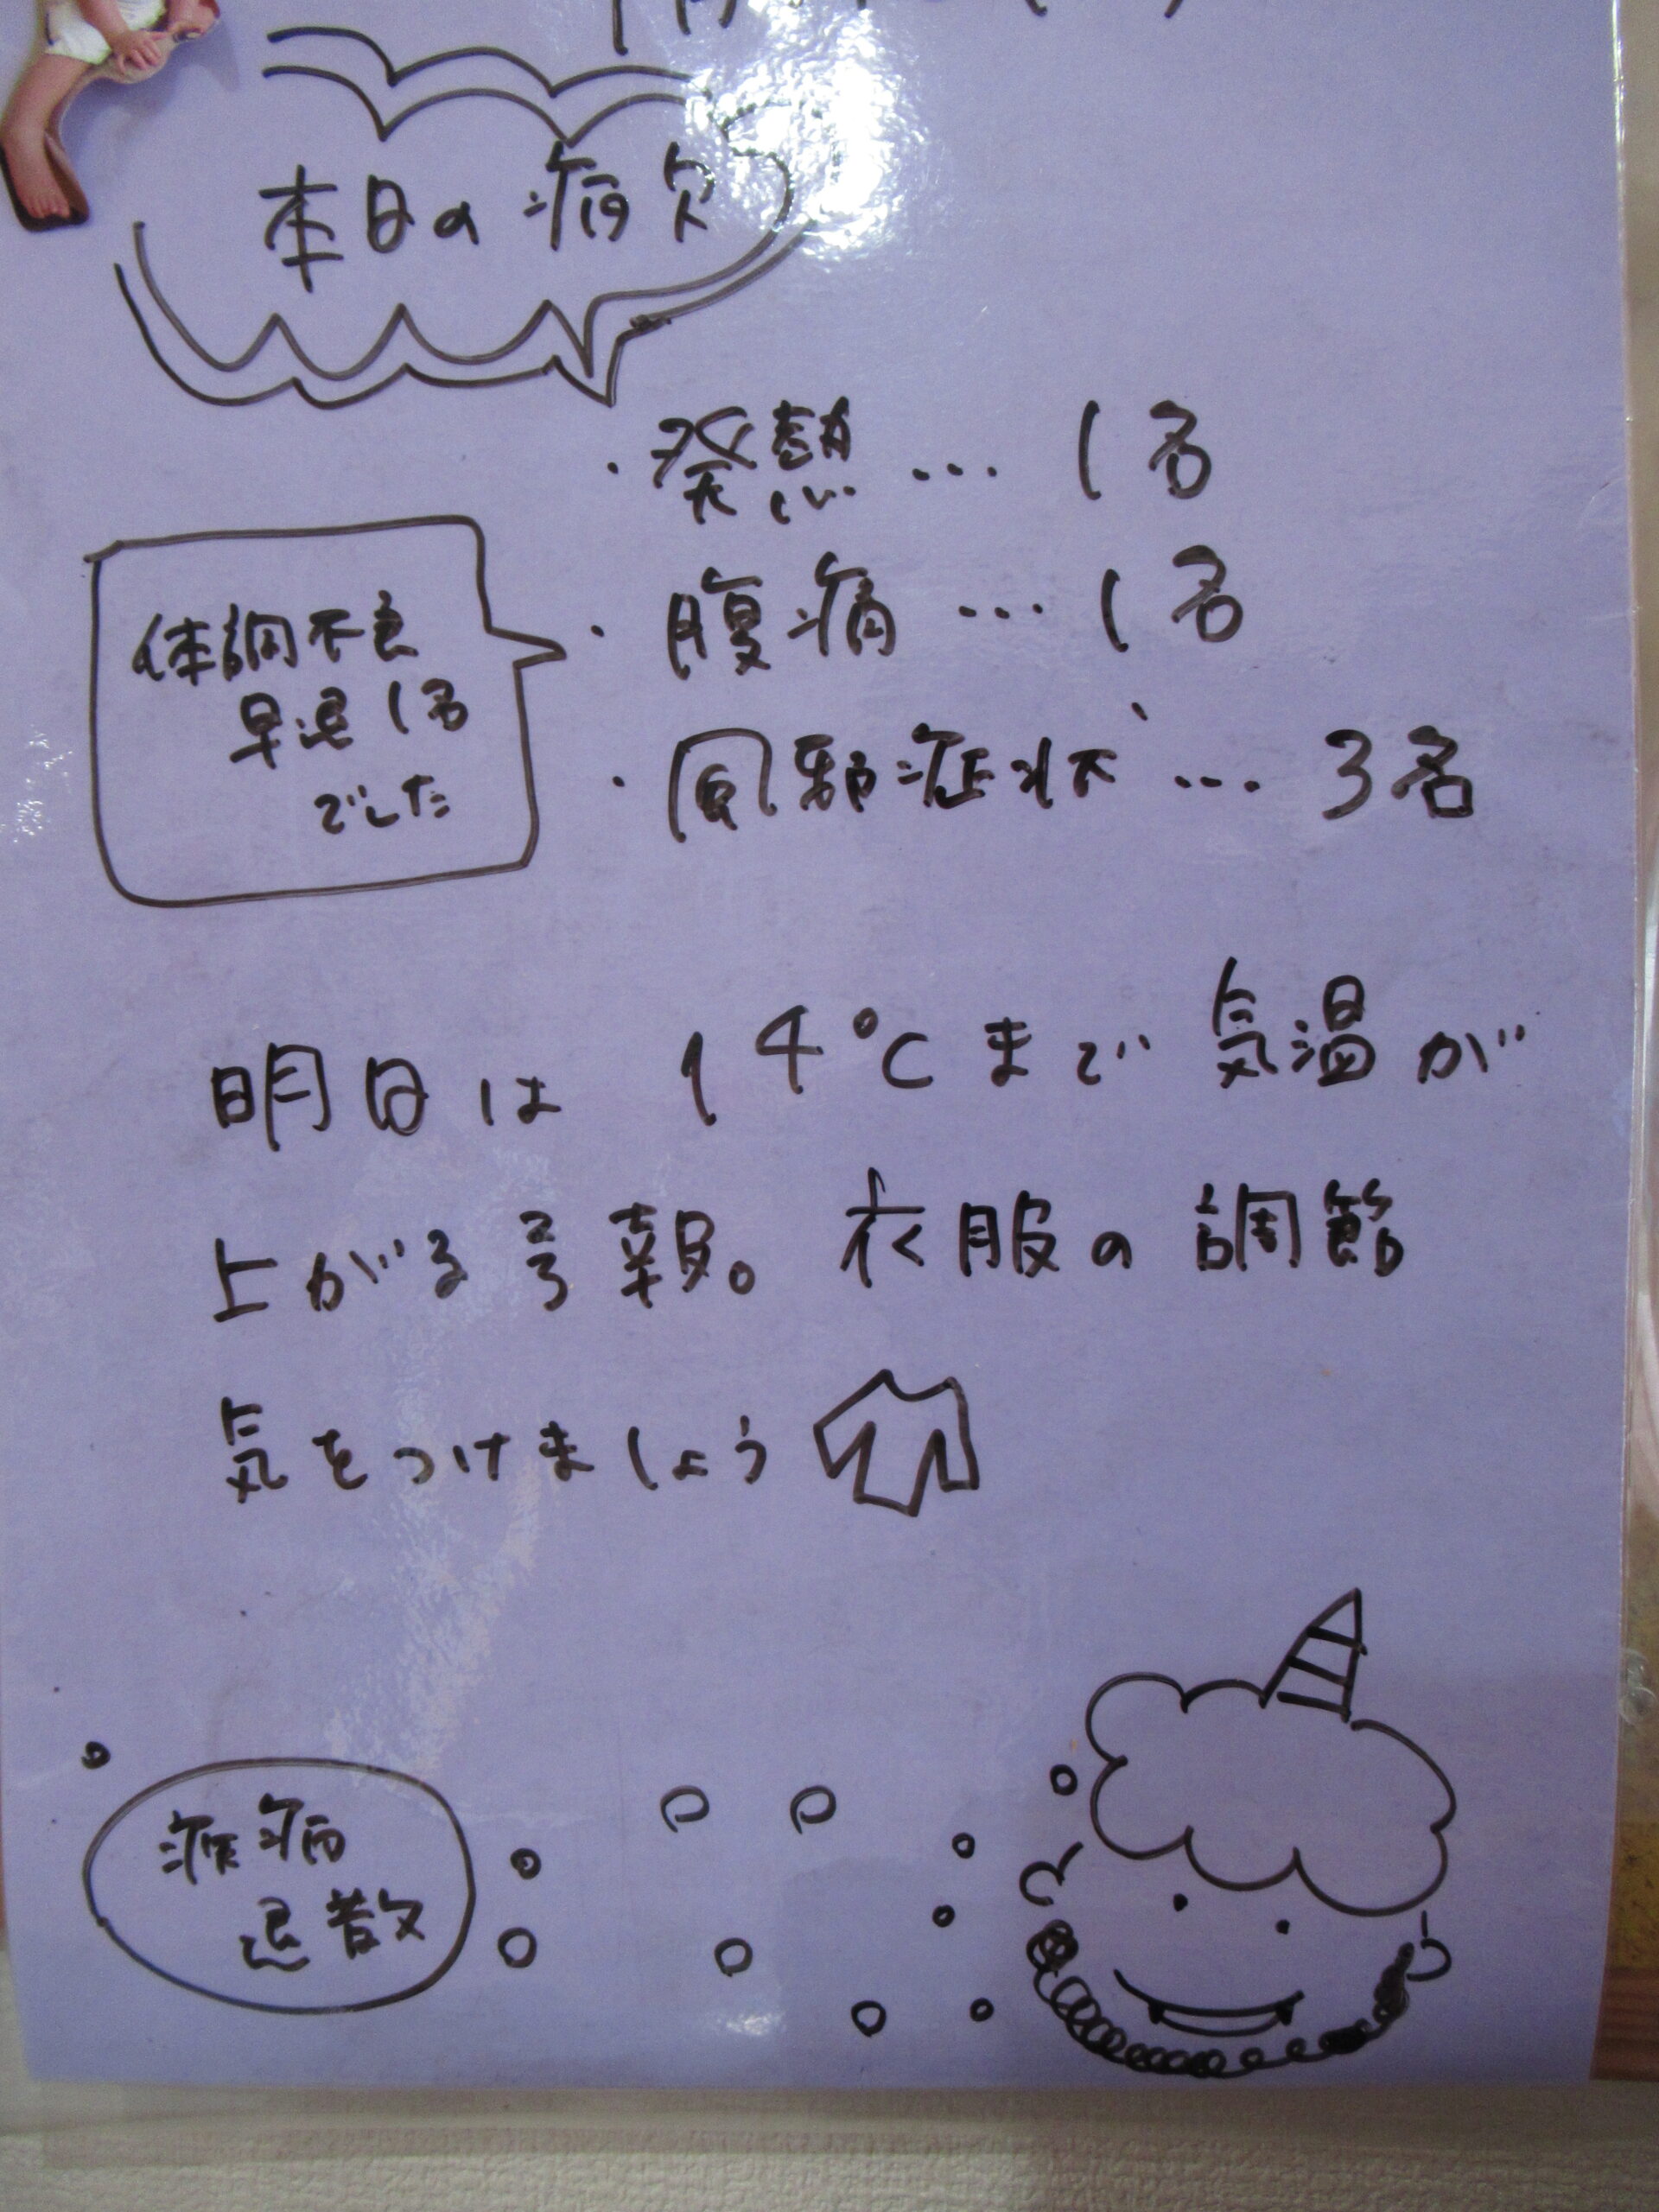 本日の病欠
・発熱 … 1名
・腹痛 … 1名
・風邪症状 … 3名
体調不良
早退1名
でした
明日は 14℃まで気温が
上がる予報。衣服の調節
気をつけましょう
病
退散